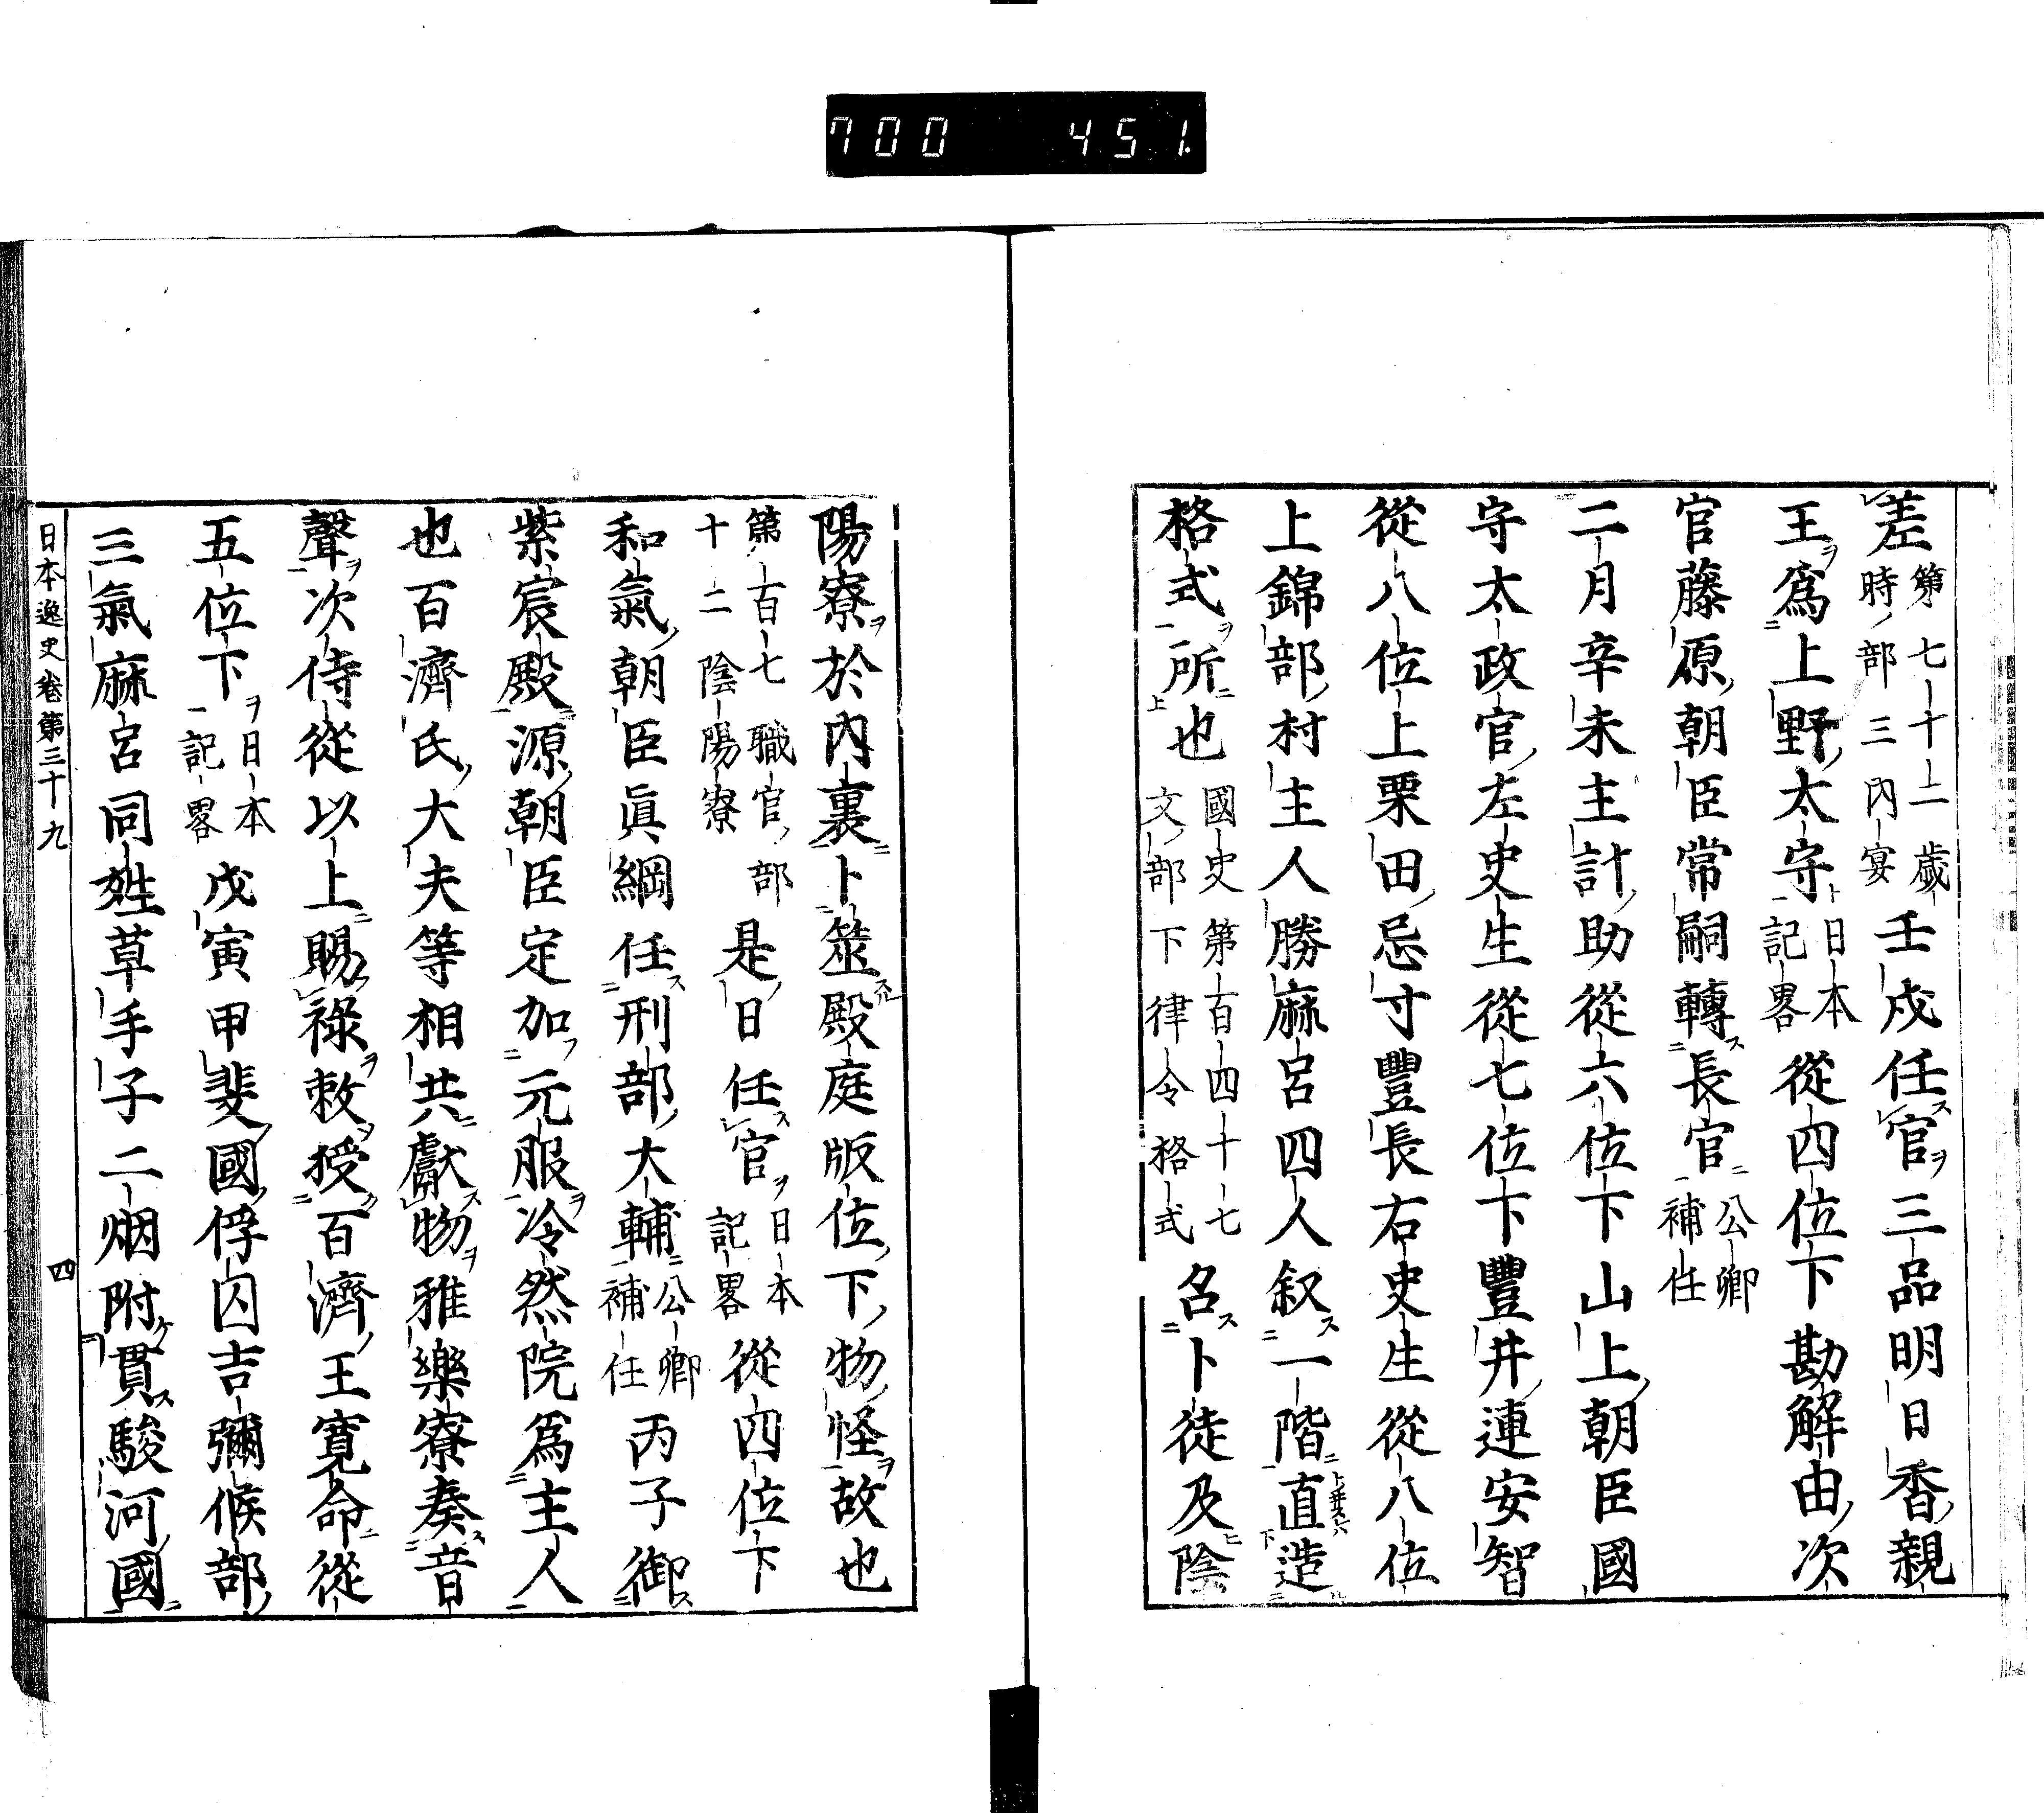 700 451
差第七十二歳時部三内宴壬戌任官三品明日香親
王爲上野太守日本記畧從四位下勘解由次
官藤原朝臣常嗣轉長官公卿補任
二月辛未主計助從六位下山上朝臣國
守太政官左史生從七位下豐井連安智
從八位上栗田忌寸豐長右史生從八位
上錦部村主人勝麻呂四人叙一階直造
格式所也國史第百四十七文部下律令格式名卜徒及陰
陽寮於内裏卜筮殿庭版位下物怪故也
第百七職官部十二陰陽寮是日任官日本記畧從四位下
和氣朝臣眞綱任刑部大輔公卿補任丙子御
紫宸殿源朝臣定加元服冷然院爲主人
也百濟氏大夫等相共獻物雅樂寮奏音
聲次侍從以上賜祿敕授百濟王寛命從
五位下日本記畧戊寅甲斐國俘囚吉彌候部
三氣麻呂同姓草手子二烟附貫駿河國
日本逸史卷第三十九 四